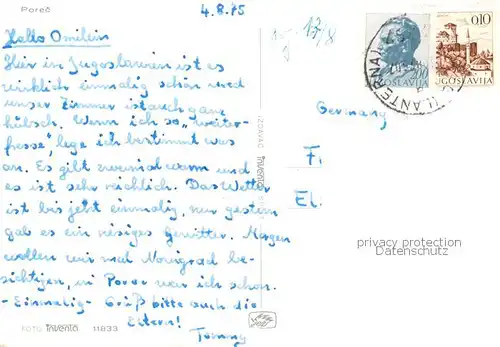 Poreč
4.8.75
Hallo Omilein
Hier in Jugoslawien ist es
wirklich einmalig schön und
unser Zimmer ist auch ganz
hübsch. Wenn ich so "weiter-
fresse", lege ich bestimmt was
an. Es gibt zweimal warm und
es ist sehr reichlich. Das Wetter
ist bis jetzt einmalig, nur gestern
gab es ein riesiges Gewitter. Morgen
wollen wir mal Novigrad be-
sichtigen, in Porec war ich schon.
- Einmalig - Grüß bitte auch die
Eltern!
Tommy
FOTO Inventa 11833
IZDAVAČ Inventa
JUGOSLAVIJA
0,10
JUGOSLAVIJA
LANTERNA
Germany
F.
El.
privacy protection
AK-Ansichtskarten.de